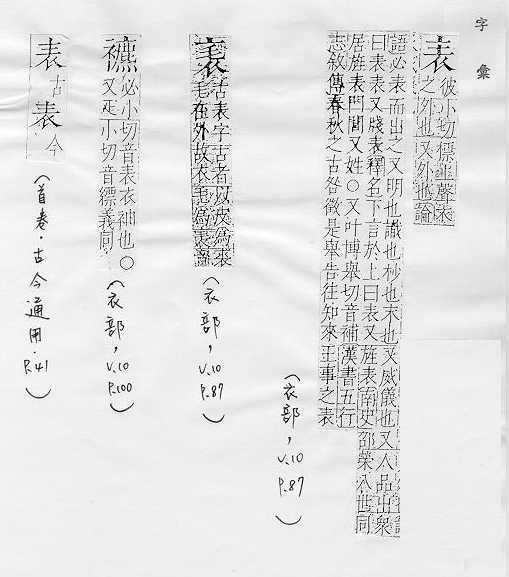 字彙
表
彼小切標上聲
之外也又外也論
語必表而出之又明也識也杪也末也又威儀也又人品出衆
曰表表又牋表釋名下言於上曰表又旌表南史邵榮八世同
居旌表門閭又姓○又叶博舉切音補漢書五行
志敘傳春秋之占咎徵是舉告往知來王事之表
(衣部,V.10 P.87)
古表字古者以皮為裘
毛在外故衣毛為表
(衣部,V.10 P.87)
褾
必小切音表衣袖也○
又匹小切音縹義同
(衣部,V.10 P.100)
表古表今
(首卷.古今通用.P.41)